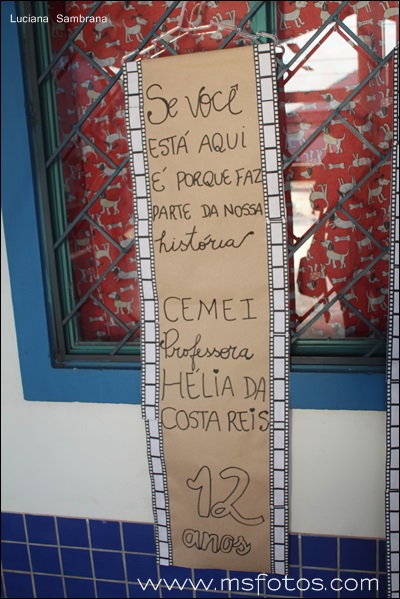 Luciana Sambrana
Se você
ESTÁ AQUI
É PORQUE FAZ
PARTE DA NOSSA
história
CEMEI
Professora
HÉLIA DA
COSTA REIS
12
anos
www.msfotos.com